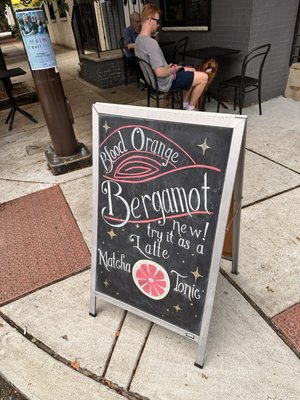 Blood Orange
Bergamot
new!
try it as a
Latte
Matcha Tonic